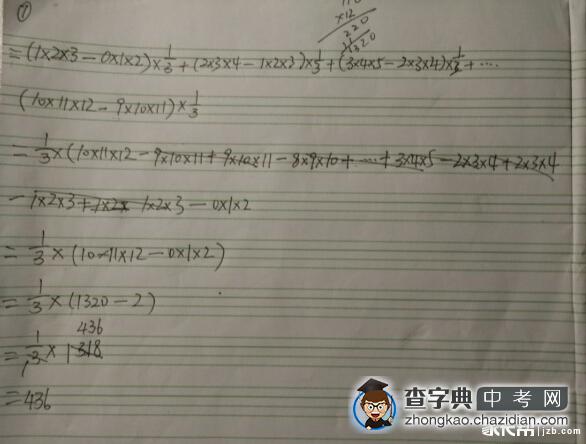 ①
110
×12
220
11
1320
=(1×2×3-0×1×2)×1/3+(2×3×4-1×2×3)×1/3+(3×4×5-2×3×4)×1/3+⋯
(10×11×12-9×10×11)×1/3
=1/3×(10×11×12-9×10×11+9×10×11-8×9×10+⋯+3×4×5-2×3×4+2×3×4
-1×2×3+1×2× 1×2×3-0×1×2
=1/3×(10×11×12-0×1×2)
=1/3×(1320-2)
436
=1/3×1318
1
=436
查字典 中考网
zhongkao.chazidian.com
家长帮 jzb.com